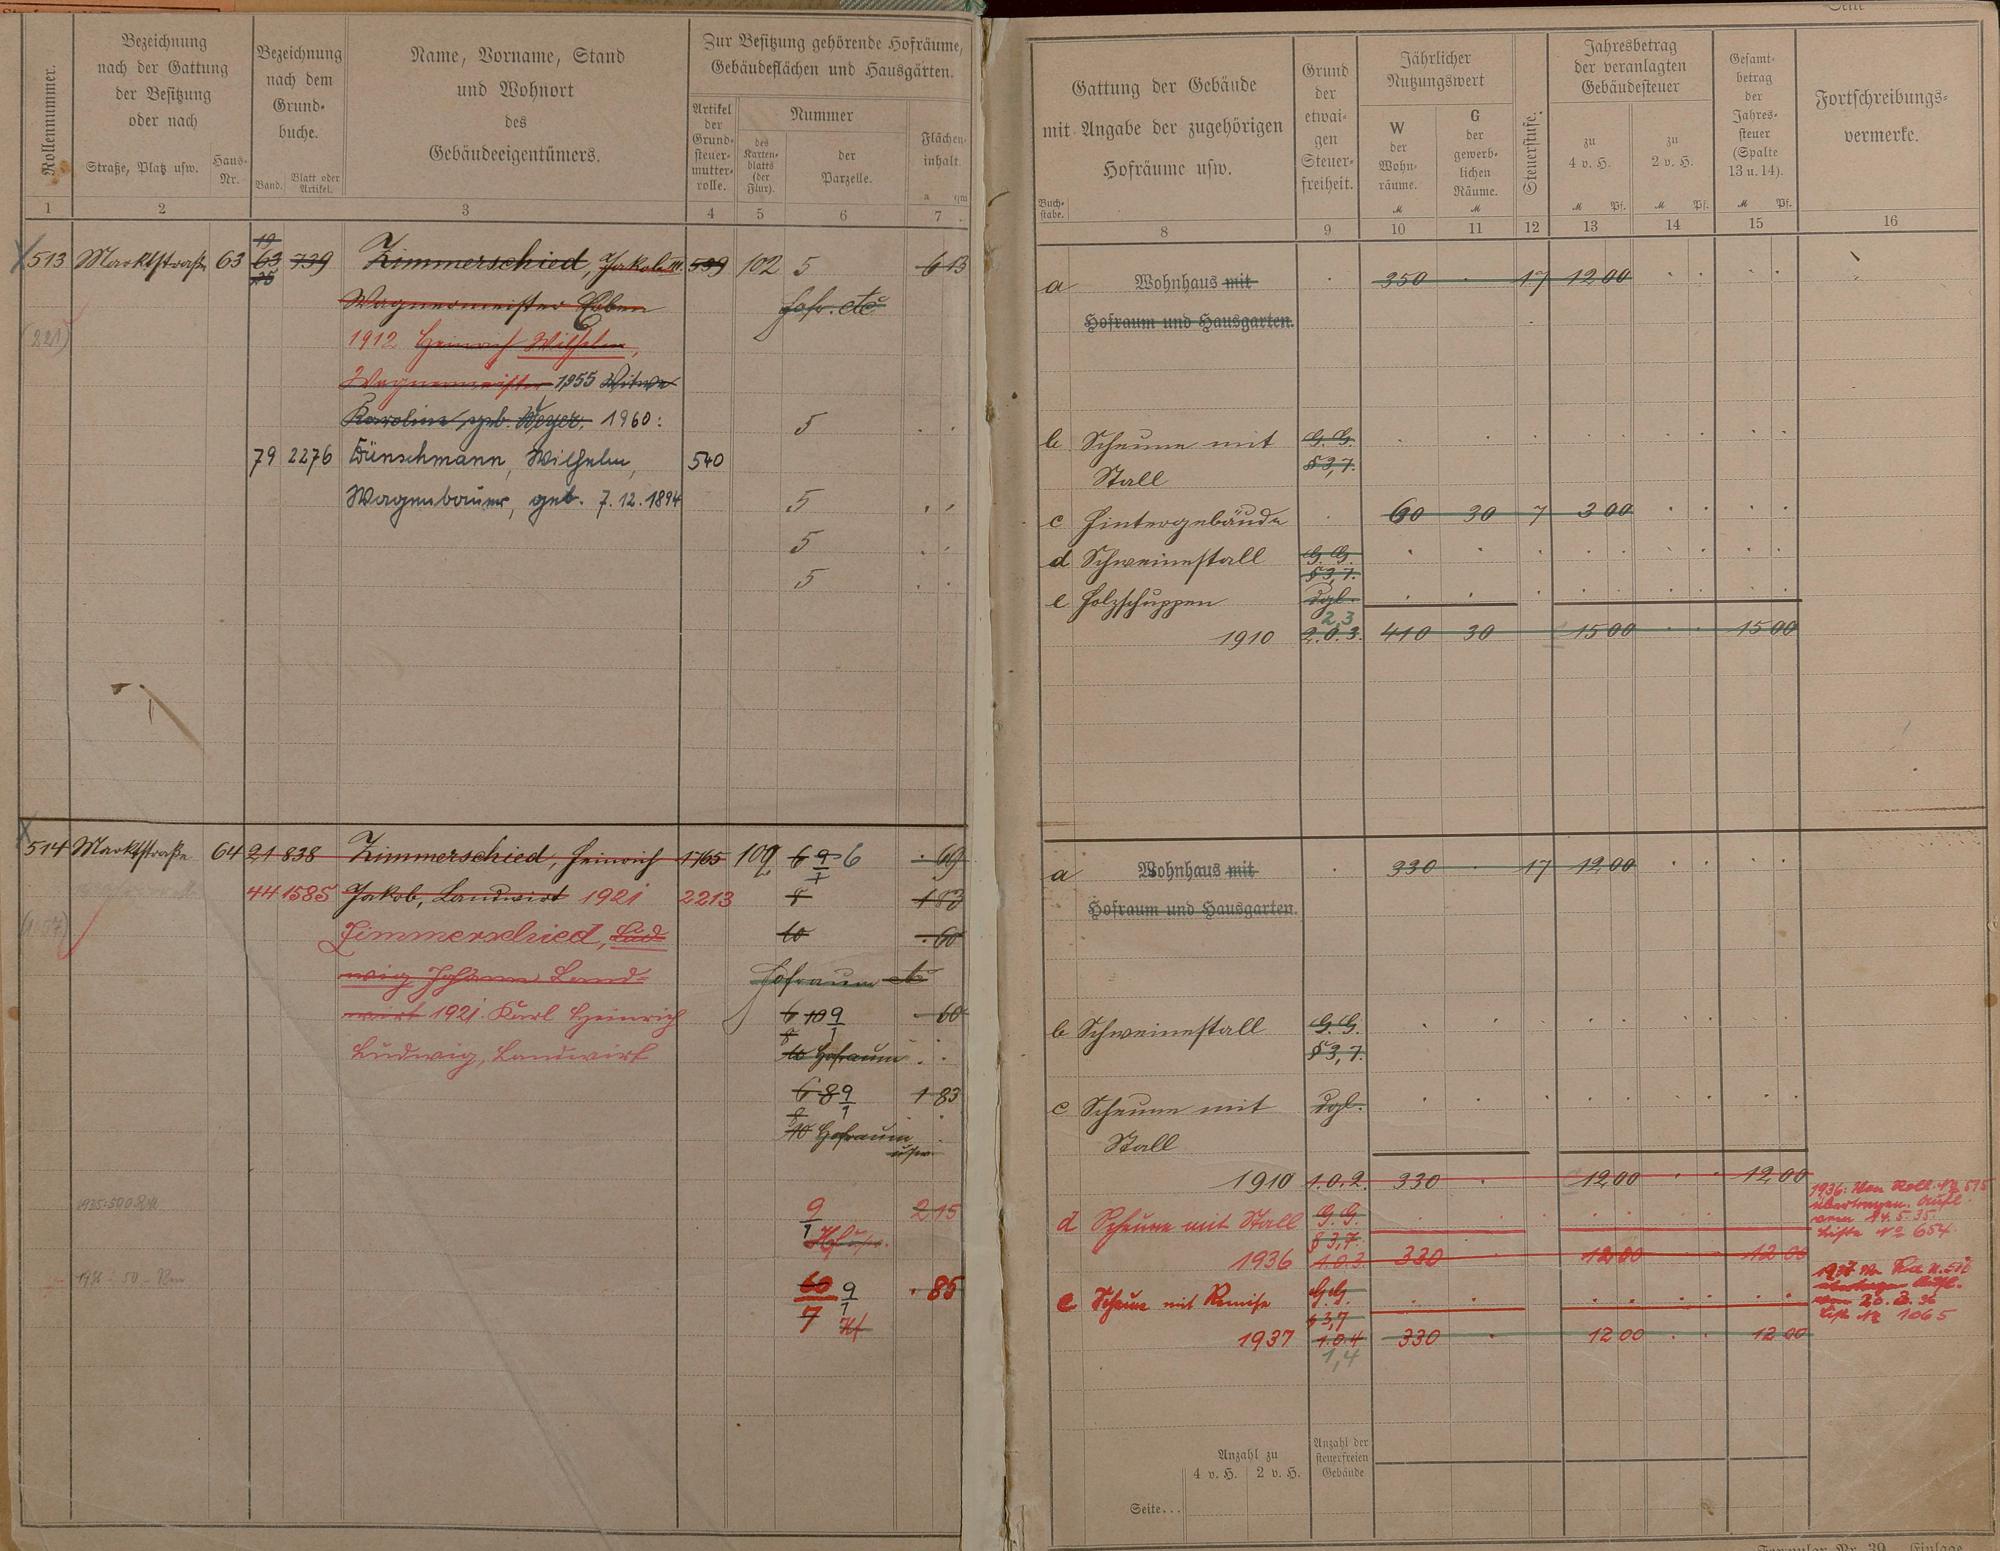 Rollennummer.
Bezeichnung
nach der Gattung
der Besitzung
oder nach
Straße, Platz usw.
Haus-
Nr.
Bezeichnung
nach dem
Grund-
buche.
Band.
Blatt oder
Artikel.
Name, Vorname, Stand
und Wohnort
des
Gebäudeeigentümers.
Zur Besitzung gehörende Hofräume,
Gebäudeflächen und Hausgärten.
Artikel
der
Grund-
steuer-
mutter-
rolle.
Nummer
des
Karten-
blatts
(der
Flur).
der
Parzelle.
Flächen-
inhalt.
a qm
1 2 3 4 5 6 7
513 Marktstraße 63 63 739 Zimmerschied, Jakob III. 539 102 5 6 13
19
Wagnermeister Erben Hofr. etc
1912 Heinrich Wilhelm,
Wagnermeister 1955 Witwe
Karoline, geb. Weyer. 1960: 5
79 2276 Dünschmann, Wilhelm, 540
Wagenbauer, geb. 7.12.1894 5
5
5
514 Marktstraße 64 21 838 Zimmerschied, Heinrich 1765 109 6 9/1 6 69
44 1585 Jakob, Landwirt 1921 2213 8 1 83
Zimmerschied, Lud- 10 60
wig Johann Land- Hofraum etc
wirt 1921. Karl Heinrich 6 10 9/1 60
Ludwig, Landwirt 8
10 Hofraum
6 8 9/1 1 83
10 Hofraum
usw.
9/1 2 15
Hf usw.
60/7 9/1 85
Hf
Seite
Gattung der Gebäude
mit Angabe der zugehörigen
Hofräume usw.
Buch-
stabe.
Grund
der
etwai-
gen
Steuer-
freiheit.
Jährlicher
Nutzungswert
W
der
Wohn-
räume.
M
G
der
gewerb-
lichen
Räume.
M
Steuerstufe.
Jahresbetrag
der veranlagten
Gebäudesteuer
zu
4 v. H.
M Pf.
zu
2 v. H.
M Pf.
Gesamt-
betrag
der
Jahres-
steuer
(Spalte
13 u. 14).
M Pf.
Fortschreibungs-
vermerke.
8 9 10 11 12 13 14 15 16
a Wohnhaus mit 350 17 12 00
Hofraum und Hausgarten.
b Scheune mit G. G.
Stall § 3,7.
c Hintergebäude 60 30 7 3 00
d Schweinestall G. G.
§ 3,7.
e Holzschuppen dgl.
2,3
1910 2.0.3. 410 30 15 00 15 00
a Wohnhaus mit 330 17 12 00
Hofraum und Hausgarten.
b Schweinestall G. G.
§ 3,7.
c Scheune mit dgl.
Stall
1910 1.0.2. 330 12 00 12 00
d Scheune mit Stall G. G.
§ 3,7.
1936 1.0.3. 330 12 00 12 00
1936: Von Roll. Nr 515
übertragen.
vom 14.5.35.
Liste No 654
e Scheune mit Remise G. G.
§ 3,7
1937 1.0.4 330 12 00 12 00
1,4
1937
Liste Nr 1065
Anzahl zu
4 v. H. 2 v. H.
Anzahl der
steuerfreien
Gebäude
Seite...
Formular Nr. 39. Einlage